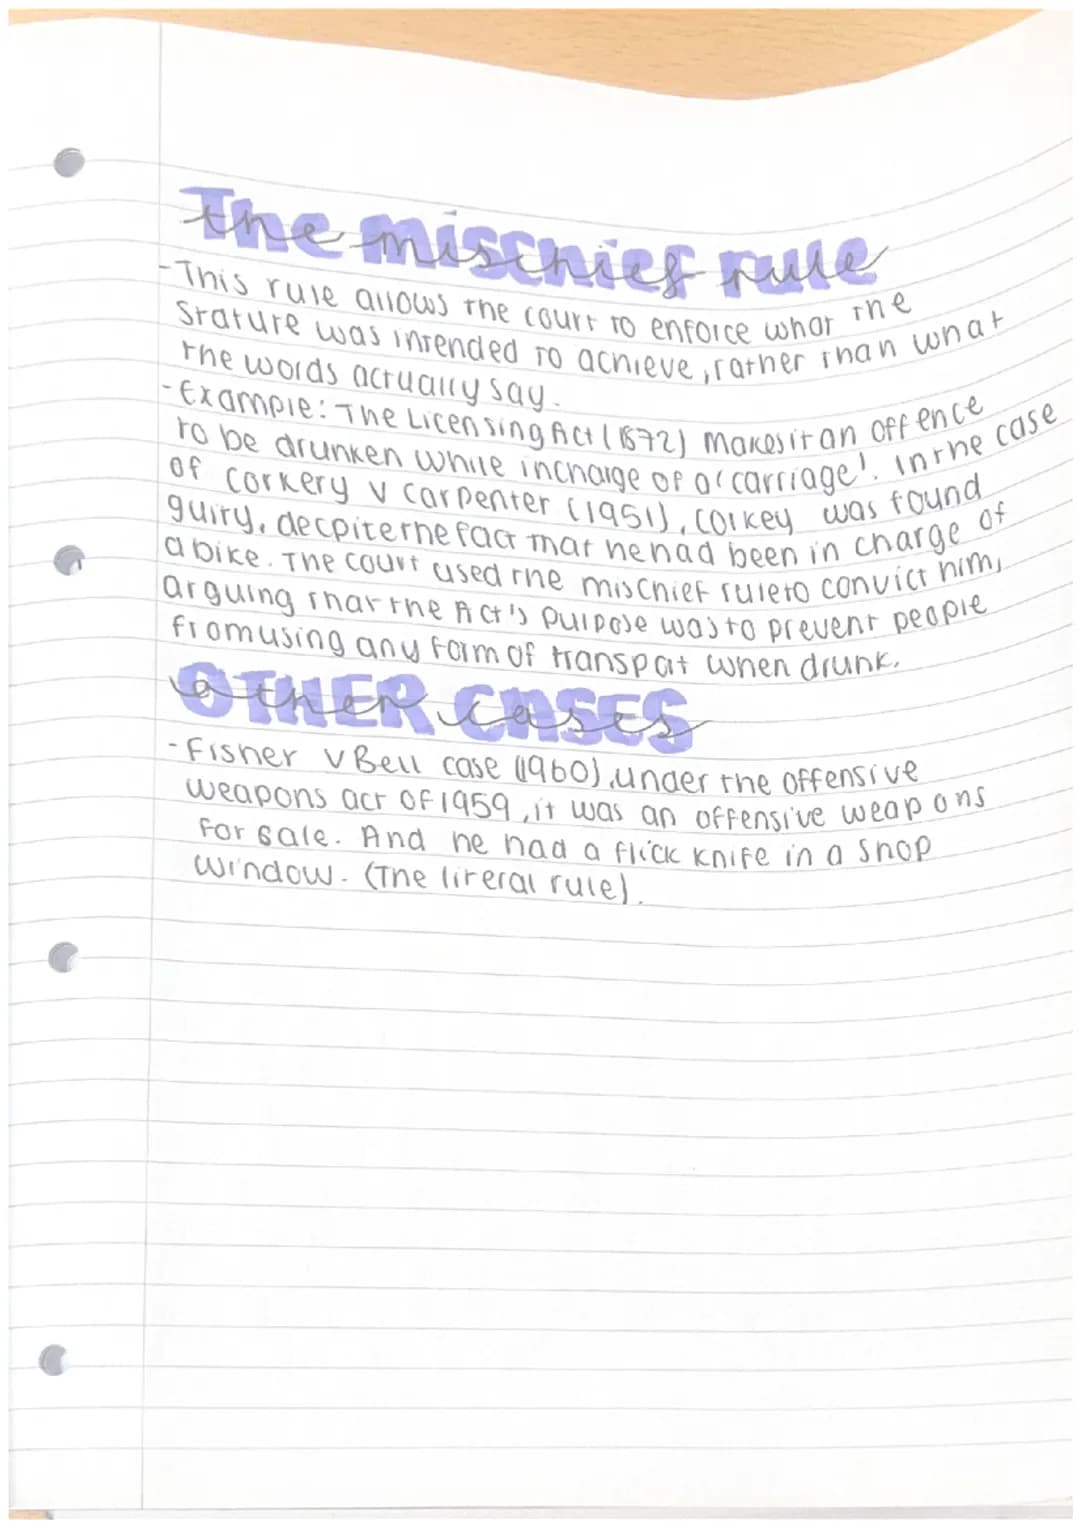 The mischief rule
-This rule allows the court to enforce what the
Stature was intended to achieve, rather than what
the words actually say.
-Example: The Licensing Act (1872) makes it an offence
to be drunken while incharge of a 'carriage'. In the case
of Corkery v Carpenter (1951), Corkey was found
guilty, decpite the fact that he had been in charge of
a bike. The court used the mischief rule to convict him,
arguing that the Act's purpose was to prevent people
from using any form of transpot when drunk.
OTHER CASES
-Fisher v Bell case (1960), under the offensive
weapons act of 1959, it was an offensive weapons
for sale. And he had a flick knife in a shop
window. (The literal rule).